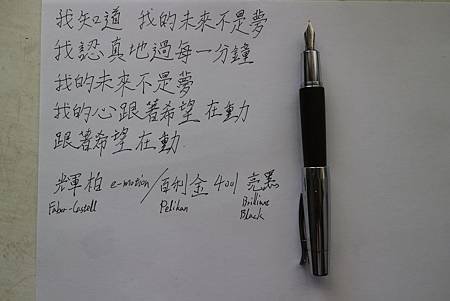 我知道 我的未來不是夢
我認真地過每一分鐘
我的未來不是夢
我的心跟著希望在動
跟著希望在動
輝柏 e-motion/百利金 4001 亮黑
Faber-Castell Pelikan Brilliant Black